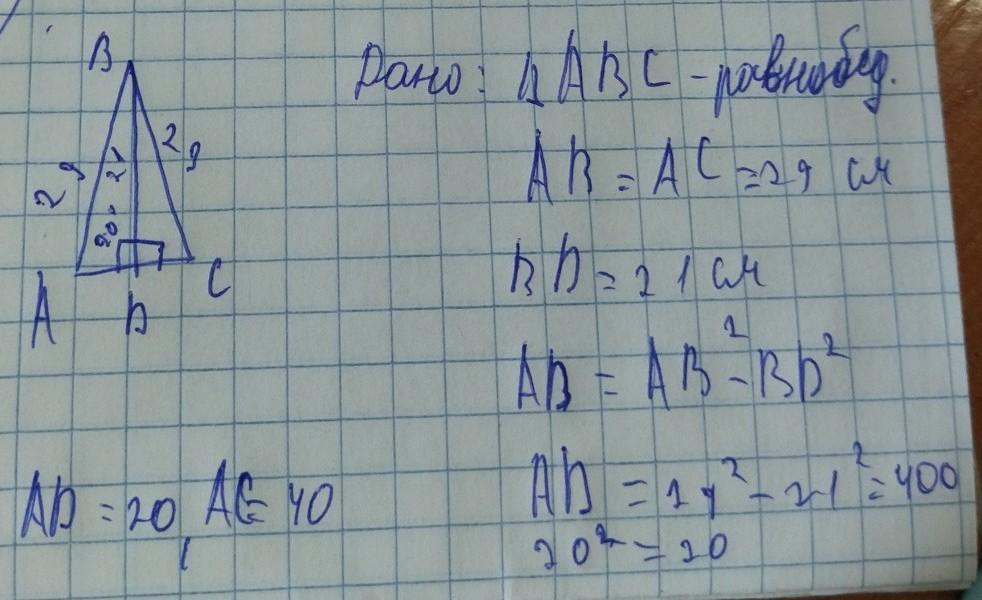 B
29
21
29
20
A
D
C
Дано: Δ ABC - равнобед.
AB = AC = 29 см
BD = 21 см
AD = AB² - BD²
AD = 29² - 21² = 400
20² = 20
AD = 20, AC = 40